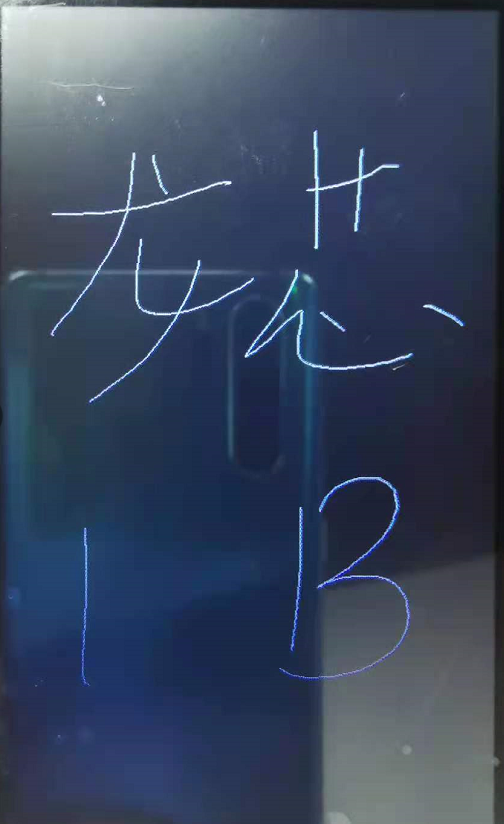 龙芯
1B